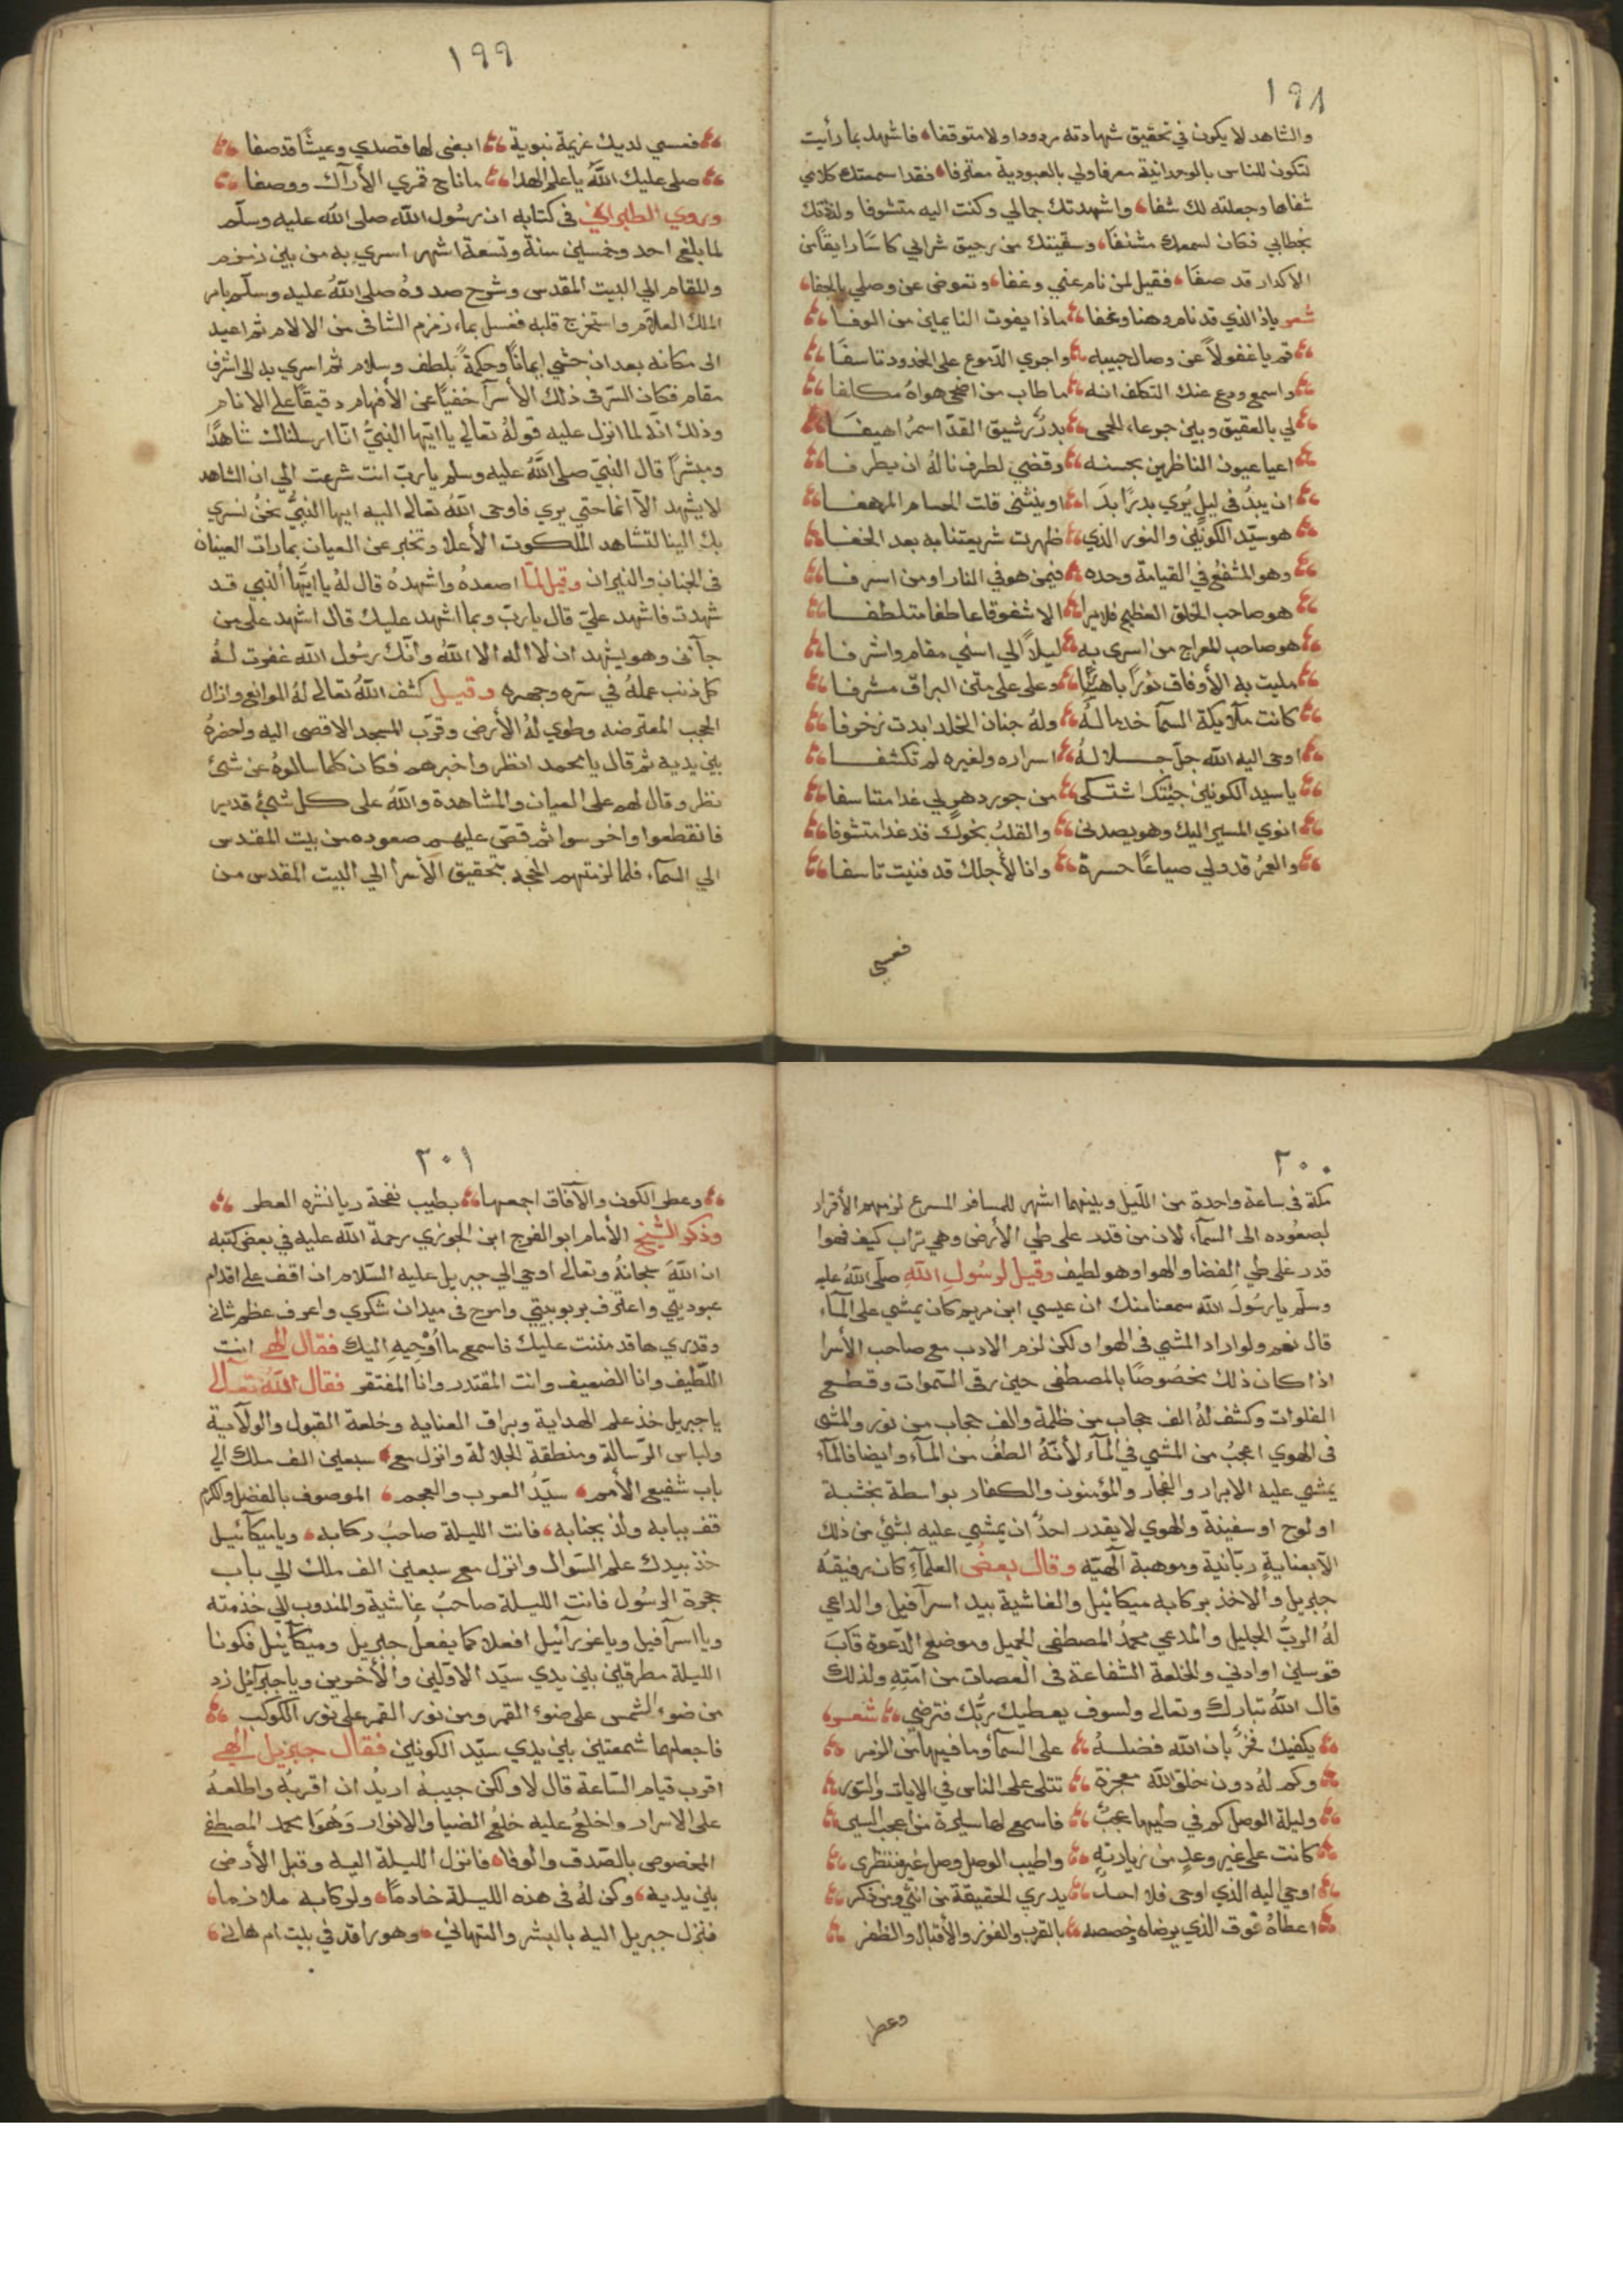 ١٩٨
والشاهد لا يكون في تحقيق شهادته مردودا ولا متوقفا فاشهد بما رأيت
لتكون للناس بالوحدانية معرفا ولي بالعبودية معترفا فقد اسمعتك كلامي
شفاها وجعلته لك شفا واشهدتك جمالي وكنت اليه متشوفا ولذذتك
بخطابي فكان لسمعك مشنفا وسقيتك من رحيق شرابي كاسًا رايقًا من
الاكدار قد صفا فقيل لمن نام عني وغفا وتعوض عن وصلي بالجفا
شعر ياذا الذي قد نام وهنا وغفا ماذا يفوت النايمين من الوفا
قم يا غفولاً عن وصال حبيبه واجري الدموع على الخدود تاسفًا
واسمع ودع عنك التكلف انه ما طاب من اضحى هواهُ مكلفا
لي بالعقيق وبين جرعاء الحمى بدرٌ رشيق القدّ اسمرُ اهيفا
اعيا عيون الناظرين بحسنه وقضي لطرف نالهُ ان يطرفا
ان يبدُ في ليلٍ يُري بدرًا بدَا او ينثنى قلت الحسام المرهفا
هو سيّد الكونين والنور الذي ظهرت شريعتنا به بعد الخفا
وهو المشفعُ في القيامة وحده فيمن هو في النار او من اسرفا
هو صاحب الخلق العظيم فلا يرا الا شفوقا عاطفا متلطفا
هو صاحب المعراج من اسرى به ليلاً الي اسني مقام واشرفا
مليت به الأوفاق نورًا باهيًا وعلى على متن البراق مشرفا
كانت ملآيكة السمآ خدما لهُ ولهُ جنان الخلد ابدت زخرفا
اوحى اليه الله جلّ جلاله اسراره ولغيره لم تكشفا
يا سيد الكونين جيتك اشتكي من جور دهرٍ لي غدا متاسفا
انوي المسير اليك وهو يصدني والقلبُ نحوك قد غدا متشوفا
والعمرُ قد ولي ضياعًا حسرة وانا لأجلك قد فنيت تاسفا
فعسي
١٩٩
فعسي لديك عزيمة نبوية ابغى لها قصدي وعيشًا قد صفا
صلى عليك اللهُ يا علم الهدا ما ناح قمري الأرآك ووصفا
وروي الطبراني في كتابه ان رسُول الله صلى الله عليه وسلّم
لما بلغ احد وخمسين سنة وتسعة اشهر اسري به من بين زمزم
والمقام الي البيت المقدس وشرح صدرهُ صلى اللهُ عليه وسلّم بامر
الملك العلآم واستخرج قلبه فغسل بماء زمزم الشافى من الالام ثم اعيد
الى مكانه بعد ان حشي ايمانًا وحكمةً بلطف وسلام ثم اسري به الى اشرف
مقام فكان السّر فى ذلك الأسرآ خفيًا عن الأفهام دقيقًا على الانام
وذلك انّه لما انزل عليه قولهُ تعالي يا ايّها النبيّ انّا ارسلناك شاهدًا
ومبشرًا قال النبيّ صلى الله عليه وسلم يا ربّ انت شرعت الي ان الشاهد
لا يشهد الاّ انما حتي يري فاوحى اللهُ تعالى اليه ايها النبيُّ نحنُ نسري
بك الينا لتشاهد الملكوت الأعلا وتخبر عن العيان بما رات العينان
فى الجنان والنيران وقيل لمّا اصعدهُ واشهدهُ قال لهُ يا ايّها النبي قد
شهدت فاشهد عليّ قال يا ربّ وبما اشهد عليك قال اشهد على من
جآنى وهو يشهد ان لا اله الا اللهُ وأنّك رسُول الله غفرت لهُ
كل ذنب عملهُ في سّره وجهره وقيل كشف اللهُ تعالى لهُ الموانع وازال
الحجب المعترضه وطوي لهُ الأرض وقرّب المسجد الاقصى اليه واحضرهُ
بين يديه ثم قال يا محمد انظر واخبرهم فكان كلما سالوهُ عن شئ
نظر وقال لهم على العيان والمشاهدة واللهُ على كل شئ قدير
فانقطعوا واخرسوا ثم قصّ عليهم صعوده من بيت المقدس
الي السمآء فلما لزمتهم الحجة بتحقيق الأسرآ الي البيت المقدس من
٢٠٠
مكة فى ساعة واحدة من اللّيل وبينهما اشهر للمسافر المسرع لزمهم الأقرار
لصعُوده الى السمآء لان من قدر على طي الأرض وهي تراب كيف فهوا
قدر على طي الفضا والهوا وهو لطيف وقيل لرسُول اللهِ صلّى اللهُ عليه
وسلّم يا رسُول الله سمعنا منك ان عيسي ابن مريم كان يمشي على المآء
قال نعم ولو اراد المشي فى الهوا ولكن لزم الادب مع صاحب الأسرا
اذا كان ذلك مخصُوصًا بالمصطفى حين رقى السّموات وقطع
الفلوات وكشف لهُ الف حجاب من ظلمة والف حجاب من نور والمشى
فى الهوي اعجبُ من المشي في المآء لأنّهُ الطفُ من المآء وايضا فالمآء
يمشي عليه الابرار والفجار والمؤمنون والكفار بواسطة بخشبة
او لوح او سفينة والهوي لا يقدر احدٌ ان يمشي عليه بشئ من ذلك
الاّ بعناية ربّانية وموهبة الهيّه وقال بعضُ العلمآءِ كان رفيقهُ
جبريل والاخذ بركابه ميكائيل والغاشية بيد اسرآفيل والداعي
لهُ الربُّ الجليل والمدعي محمدُ المصطفى الجميل وموضع الدّعوة قابَ
قوسين او ادني والخلعة الشفاعة فى العصات من امّتهِ ولذلك
قال اللهُ تبارك وتعالى ولسوف يعطيك ربُّك فترضي شعر
يكفيك فخرٌ بان الله فضلهُ على السمآ وما فيها من الزمر
وكم لهُ دون خلق الله معجزة تتلى على الناس في الايات والسّور
وليلة الوصل كم في طيها عجبٌ فاسمع لها سيرة من اعجب السير
كانت على غير وعدٍ من زيارتهِ واطيب الوصل وصل غير منتظري
اوحى اليه الذي اوحى فلا احدٌ يدري الحقيقة من انثي ومن ذكر
اعطاهُ فوق الذي يرضاه وخصصه بالقرب والفوز والأقبال والظفر
وعطر
٢٠١
وعطر الكون والآفاق اجمعها بطيب نفحة ريا نشره العطر
وذكر الشيخ الأمام ابو الفرج ابن الجوزي رحمة الله عليه في بعض كتبه
ان اللهَ سبحانهُ وتعالى اوحي الي جبريل عليه السّلام ان اقف على اقدام
عبوديتي واعترف بربوبيتي وامرح فى ميدان شكري واعرف عظم شانى
وقدري ها قد مننت عليك فاسمع ما اُوْحِيهِ اليك فقال الهي انت
اللّطيف وانا الضعيف وانت المقتدر وانا المفتقر فقال الله تعالى
يا جبريل خذ علم الهداية وبراق العنايه وخلعة القبول والولآية
ولباس الرّسالة ومنطقة الجلالة وانزل مع سبعين الف ملك الي
باب شفيع الأمم سيّدُ العرب والعجم الموصوف بالفضل والكرم
قف ببابه ولذ بجنابه فانت الليلة صاحبُ ركابه ويا ميكآئيل
خذ بيدك علم السّوال وانزل مع سبعين الف ملك الي باب
حجرة الرسُول فانت الليلة صاحبُ غاشية والمندوب الي خدمته
ويا اسرآفيل ويا عزرآئيل افعلا كما يفعل جبريل وميكآئيل فكونا
الليلة مطرقين بين يدي سيّد الاوّلين والأخرين ويا جبرآئل زد
من ضوء الشمس على ضوء القمر ومن نور القمر على نور الكوكب
فاجعلهما شمعتين بين يدي سيّد الكونين فقال جبريل الهي
اقرب قيام السّاعة قال لا ولكن حبيبهُ اريدُ ان اقربهُ واطلعهُ
على الاسرار واخلعُ عليه خلعُ الضيا والانوار وَهُوَا محمد المصطفى
المخصوص بالصّدق والوفا فانزل الليلة اليه وقبل الأرض
بين يديه وكن لهُ فى هذه الليلة خادمًا ولركابه ملازما
فنزل جبريل اليه بالبشر والتهاني وهو راقد في بيت ام هانى